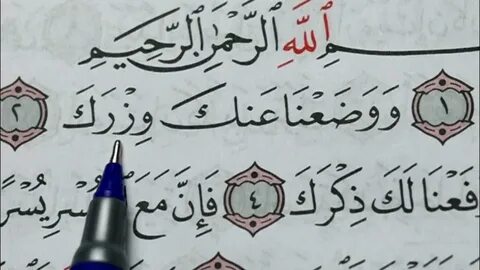 ـمِ ٱللَّهِ ٱلرَّحْمَٰنِ ٱلرَّحِيمِ
١ وَوَضَعْنَا عَنكَ وِزْرَكَ ٢
فَعْنَا لَكَ ذِكْرَكَ ٤ فَإِنَّ مَعَ ٱلْعُسْرِ يُسْرًا